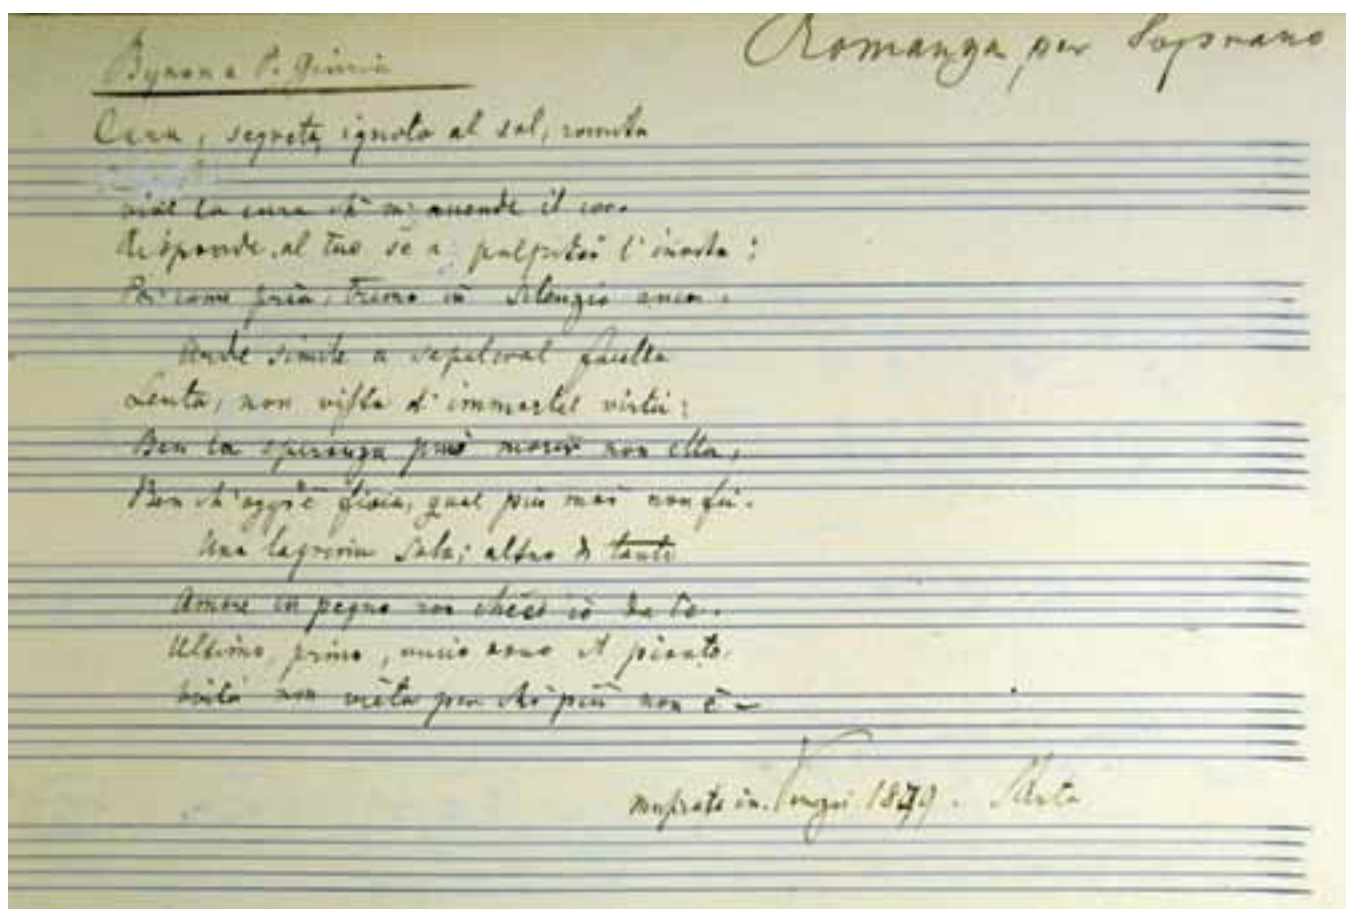 Romanza per Soprano
Byron e P.
Cura, segreta, ignota al sol, romita
vive la cura ch'è m'accende il cor.
Risponde al tuo se a palpitar l'invita:
Poi come pria, tremo in silenzio ancor.
Arde simile a sepolcral facella
Lenta, non vista d'immortal virtù:
Ben la speranza può morir non ella,
Ben ch'oggi è fioca, qual più mai non fù.
Una lagrima sola; altro di tanto
Amore in pegno non chiedo io da te.
Ultimo, primo, unico sono il pianto,
viltà non vieta per chi più non è –
musicata in. Venezia 1879.